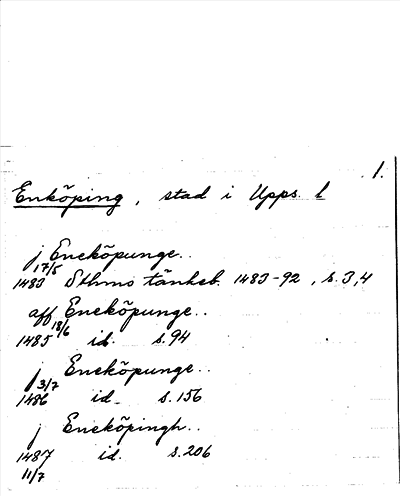 1.
Enköping, stad i Upps. l
j Eneköpunge..
17/5
1483 Sthms tänkeb. 1483-92, s. 3,4
aff Eneköpunge..
18/6
1485 id. s. 94
j Eneköpunge..
3/7
1486 id. s. 156
j Eneköpingh..
1487 id. s. 206
11/7